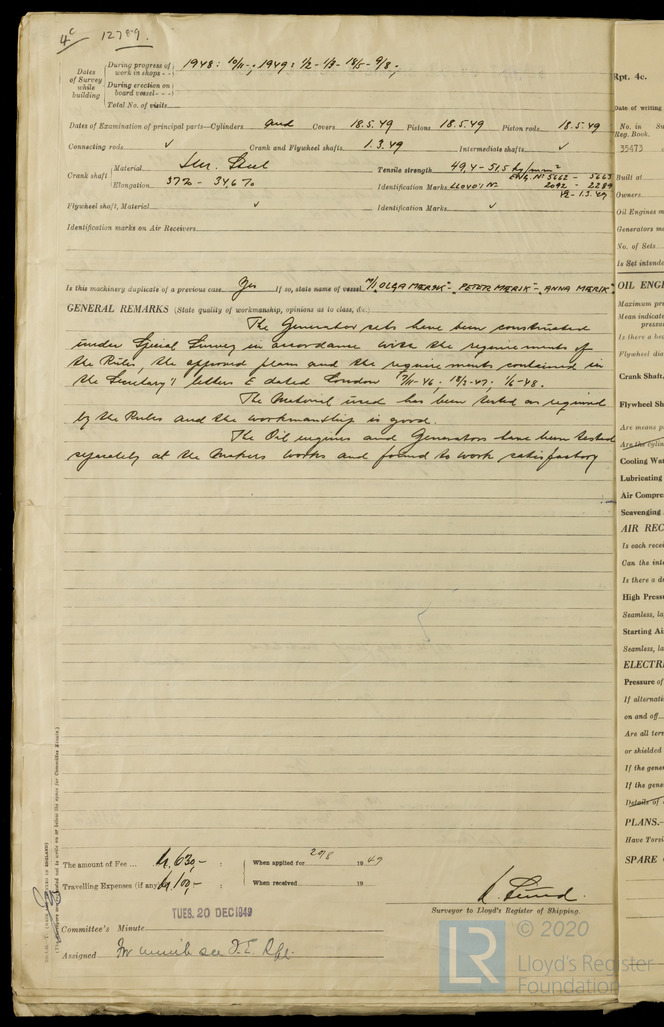 4c 12789.
Dates of Survey while building
During progress of work in shops - - 1948: 10/11-; 1949: 1/2 - 1/3 - 18/5 - 9/8;
During erection on board vessel - - -
Total No. of visits
Dates of Examination of principal parts—Cylinders and Covers 18.5.49 Pistons 18.5.49 Piston rods 18.5.49
Connecting rods ✓ Crank and Flywheel shafts 1.3.49 Intermediate shafts ✓
Crank shaft Material Steel Tensile strength 49,4 - 51,5 kg/mm²
Elongation 37% - 34,6% Identification Marks LLOYD'S No
ENG. No 5662 - 5663
2092 - 2289
1.3.49
Flywheel shaft, Material ✓ Identification Marks ✓
Identification marks on Air Receivers
Is this machinery duplicate of a previous case Yes If so, state name of vessel M/S "OLGA MÆRSK"- "PETER MÆRSK"- "ANNA MÆRSK".
GENERAL REMARKS (State quality of workmanship, opinions as to class, &c.)
The Generator sets have been constructed
under Special Survey in accordance with the requirements of
the Rules, the approved plans and the requirements contained in
the Secretary's letters E dated London 7/11-46; 18/3-47; 1/6-48.
The Material used has been tested as required
by the Rules and the workmanship is good.
The Oil engines and Generators have been tested
separately at the Makers works and found to work satisfactory
The amount of Fee ... Kr. 630,- : When applied for 20/8 1949
Travelling Expenses (if any) Kr. 100,- : When received 19
Surveyor to Lloyd's Register of Shipping.
TUES. 20 DEC 1949
Committee's Minute
Assigned For minute see F.E. Rpt.
© 2020
LR
Lloyd's Register
Foundation
Rpt. 4c.
Date of writing
No. in
Reg. Book.
35473
Built at
Owners
Oil Engines m
Generators ma
No. of Sets
Is Set intende
OIL ENGI
Maximum pre
Mean indicate
pressu
Is there a bea
Flywheel dia
Crank Shaft,
Flywheel Sh
Are means p
Are the cylin
Cooling Wat
Lubricating
Air Compre
Scavenging
AIR REC
Is each recei
Can the inte
Is there a dr
High Pressu
Seamless, la
Starting Air
Seamless, la
ELECTR
Pressure of
If alternati
on and off
Are all term
or shielded
If the gene
If the gene
Details of
PLANS.—
Have Torsi
SPARE